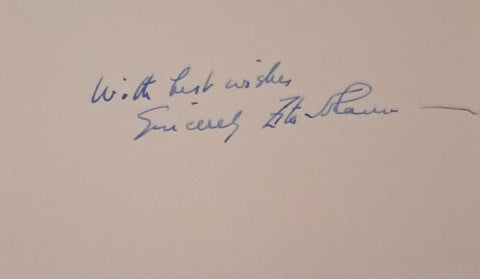 With best wishes
Sincerely Zita Johann